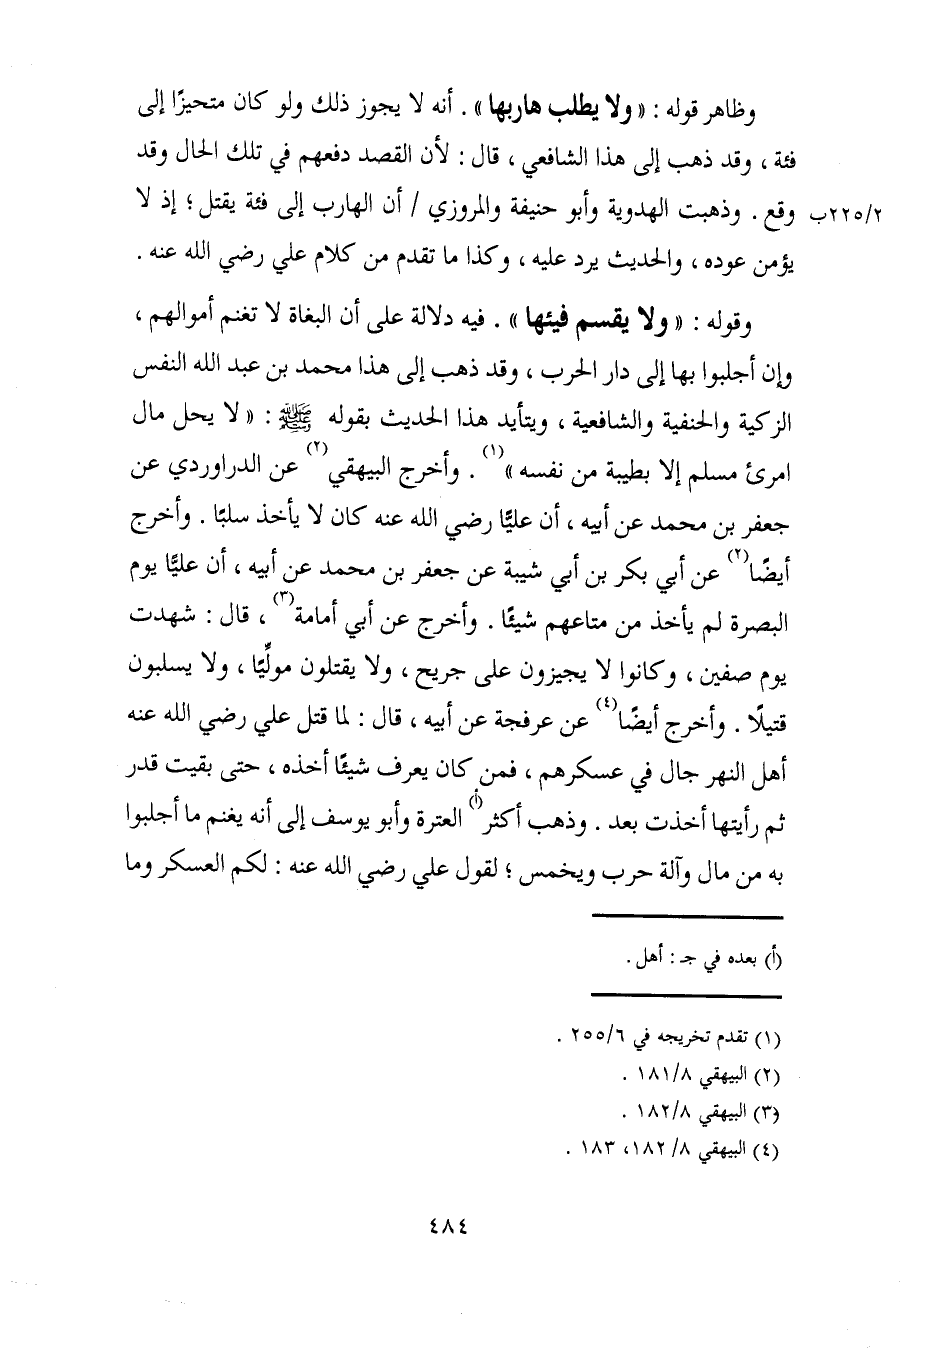 وظاهر قوله : « ولا يطلب هاربها » . أنه لا يجوز ذلك ولو كان متحيزًا إلى
فئة ، وقد ذهب إلى هذا الشافعي ، قال : لأن القصد دفعهم في تلك الحال وقد
٢٢٥/٢ب وقع . وذهبت الهدوية وأبو حنيفة والمروزي / أن الهارب إلى فئة يقتل ؛ إذ لا
يؤمن عوده ، والحديث يرد عليه ، وكذا ما تقدم من كلام علي رضي الله عنه .
وقوله : « ولا يقسم فيئها » . فيه دلالة على أن البغاة لا تغنم أموالهم ،
وإن أجلبوا بها إلى دار الحرب ، وقد ذهب إلى هذا محمد بن عبد الله النفس
الزكية والحنفية والشافعية ، ويتأيد هذا الحديث بقوله ﷺ : « لا يحل مال
امرئ مسلم إلا بطيبة من نفسه »(١) . وأخرج البيهقي(٢) عن الدراوردي عن
جعفر بن محمد عن أبيه ، أن عليًّا رضي الله عنه كان لا يأخذ سلبًا . وأخرج
أيضًا(٢) عن أبي بكر بن أبي شيبة عن جعفر بن محمد عن أبيه ، أن عليًّا يوم
البصرة لم يأخذ من متاعهم شيئًا . وأخرج عن أبي أمامة(٣) ، قال : شهدت
يوم صفين ، وكانوا لا يجيزون على جريح ، ولا يقتلون مولِّيًا ، ولا يسلبون
قتيلًا . وأخرج أيضًا(٤) عن عرفجة عن أبيه ، قال : لما قتل علي رضي الله عنه
أهل النهر جال في عسكرهم ، فمن كان يعرف شيئًا أخذه ، حتى بقيت قدر
ثم رأيتها أخذت بعد . وذهب أكثر(أ) العترة وأبو يوسف إلى أنه يغنم ما أجلبوا
به من مال وآلة حرب ويخمس ؛ لقول علي رضي الله عنه : لكم العسكر وما
(أ) بعده في جـ : أهل .
(١) تقدم تخريجه في ٢٥٥/٦ .
(٢) البيهقي ١٨١/٨ .
(٣) البيهقي ١٨٢/٨ .
(٤) البيهقي ٨/ ١٨٢، ١٨٣ .
٤٨٤